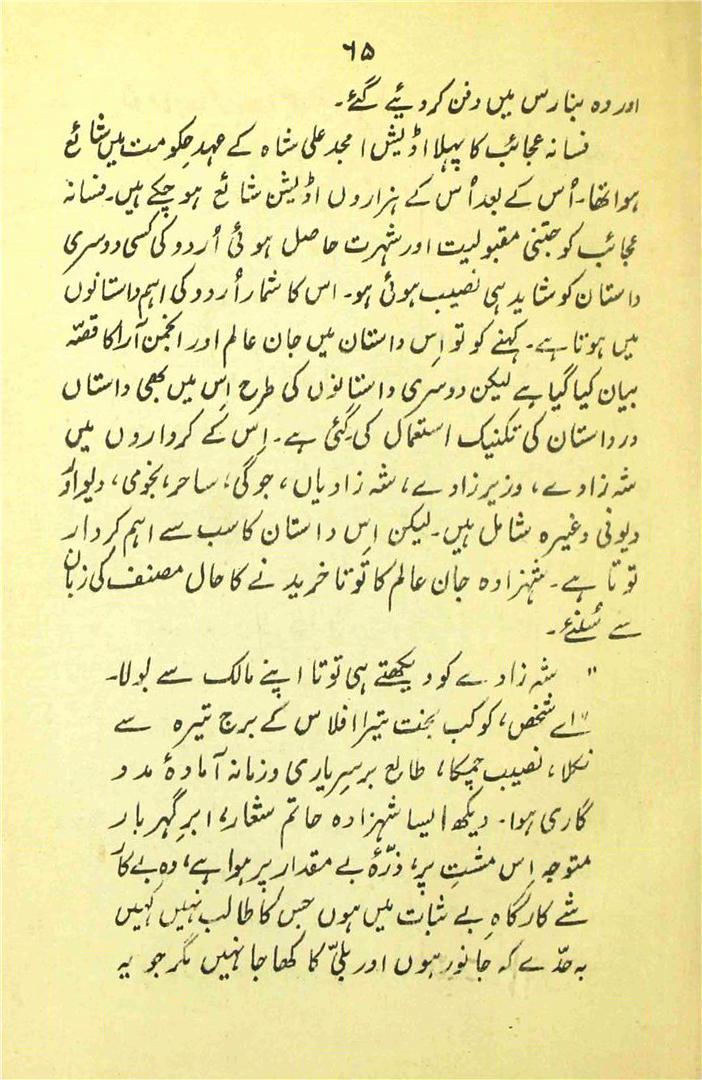 ۶۵
اور وہ بنارس میں دفن کر دیئے گئے۔
فسانہ عجائب کا پہلا اڈیشن امجد علی شاہ کے عہدِ حکومت میں شائع
ہوا تھا۔ اُس کے بعد اُس کے ہزاروں اڈیشن شائع ہو چکے ہیں۔ فسانہ
عجائب کو جتنی مقبولیت اور شہرت حاصل ہوئی اُردو کی کسی دوسری
داستان کو شاید ہی نصیب ہوئی ہو۔ اس کا شمار اُردو کی اہم داستانوں
میں ہوتا ہے۔ کہنے کو تو اِس داستان میں جان عالم اور انجمن آرا کا قصّہ
بیان کیا گیا ہے لیکن دوسری داستانوں کی طرح اِس میں بھی داستاں
در داستان کی تکنیک استعمال کی گئی ہے۔ اِس کے کرداروں میں
شہ زادے، وزیر زادے، شہ زادیاں، جوگی، ساحر، نجومی، دیو اور
دیونی وغیرہ شامل ہیں۔ لیکن اِس داستان کا سب سے اہم کردار
توتا ہے۔ شہزادہ جان عالم کا توتا خریدنے کا حال مصنف کی زبان
سے سُنئے۔
" شہ زادے کو دیکھتے ہی توتا اپنے مالک سے بولا۔
"اے شخص، کوکب بخت تیرا افلاس کے برج تیرہ سے
نکلا، نصیب چمکا، طالع برسرِ یاری و زمانہ آمادۂ مدد
گاری ہوا۔ دیکھ ایسا شہزادہ حاتم شعار، ابرِ گہر بار
متوجہ اِس مشتِ پر، ذرّۂ بے مقدار پر ہوا ہے، وہ بے کار
شے کارگاہِ بے ثبات میں ہوں جس کا طالب نہیں کہیں
بہ حدّے کہ جانور ہوں اور بلّی کا کھاجا نہیں مگر جو یہ